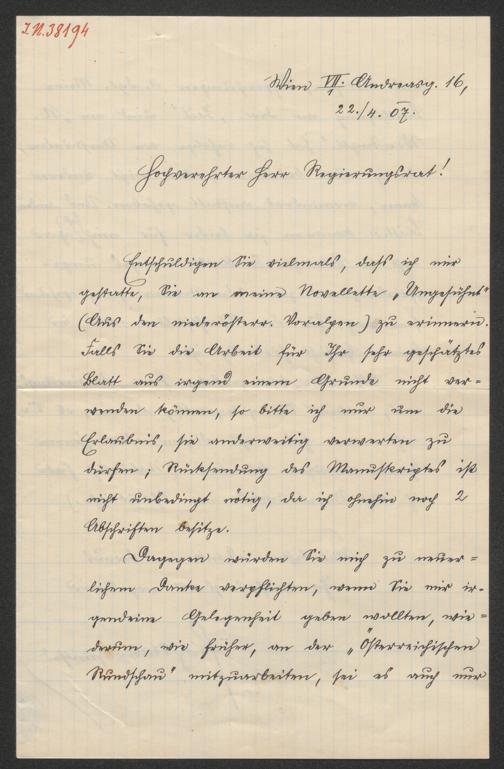 I.N. 38194
Wien VII/1. Andreasg. 16,
22./4. 07.
Hochverehrter Herr Regierungsrat!
Entschuldigen Sie vielmals, dass ich mir
gestatte, Sie an meine Novellette „Ungesühnt"
(Aus den niederösterr. Voralpen) zu erinnern.
Falls Sie die Arbeit für Ihr sehr geschätztes
Blatt aus irgend einem Grunde nicht ver=
wenden können, so bitte ich nur um die
Erlaubnis, sie anderweitig verwerten zu
dürfen; Rücksendung des Manuskriptes ist
nicht unbedingt nötig, da ich ohnehin noch 2
Abschriften besitze.
Dagegen würden Sie mich zu neuer=
lichem Danke verpflichten, wenn Sie mir ir=
gendeine Gelegenheit geben wollten, wie=
derum, wie früher, an der „Österreichischen
Rundschau" mitzuarbeiten, sei es auch nur